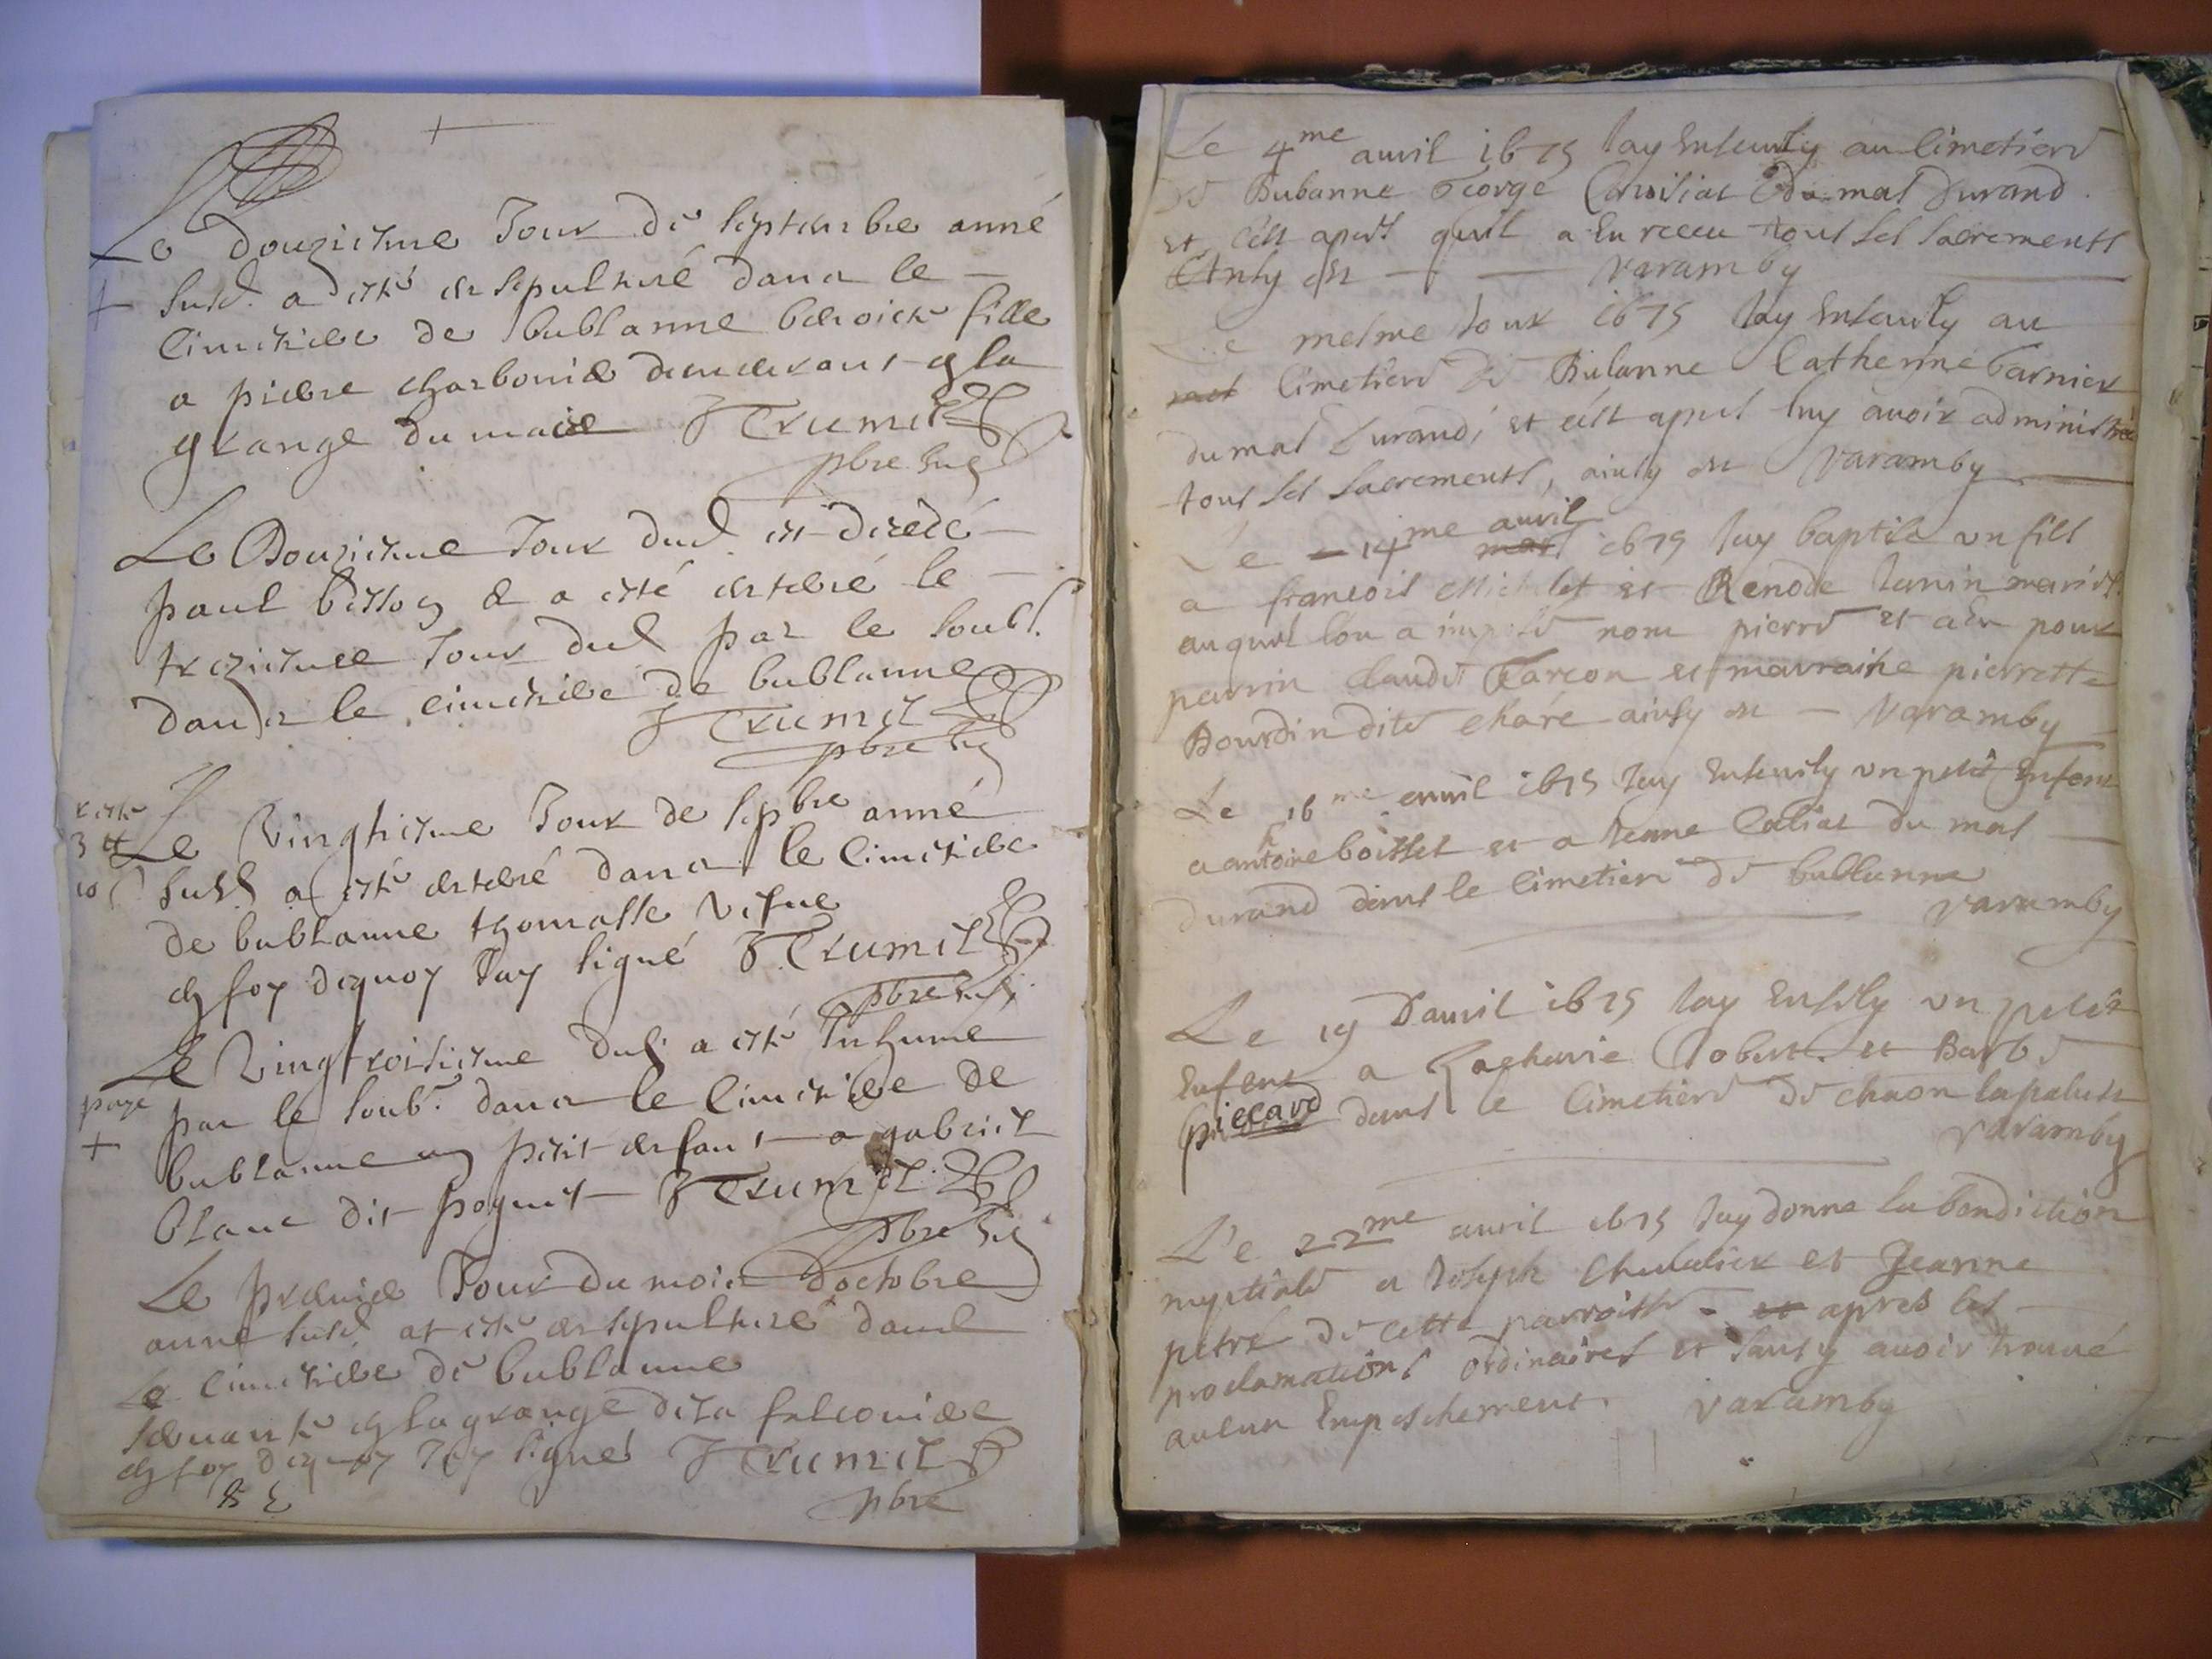 Le Douziesme Jour de septembre anné
susd. a esté ensepulturé dans le
Cimetiere de bublanne benoiste fille
a pierre charbonier
grange du maise J Trumel
pbre
Le Douziesme Jour dud. est decedé
paul & a esté enterré le
treziesme Jour dud par le soubs.
dans le cimetiere de bublanne
J Trumel
pbre
Le Vingtiesme Jour de 7bre anné
susd a esté enterré dans le Cimetiere
de bublanne thomasse
en foy dequoy Jay signé J Trumel
pbre
Le Vingtroisiesme dud. a esté Inhumé
par le soub. dans le Cimetiere de
bublanne un petit enfant a gabriel
blanc dit poguet J Trumel
pbre
Le premier Jour du mois doctobre
anné susd at esté ensepulturé dans
Le Cimetiere de bublanne
servante en la grange de la falconiere
en foy dequoy Jay signé J Trumel
pbre
paye
Le 4me auril 1675 Jay Enseuely au Cimetiere
de Bubanne George du mas Durand
et cest apres quil a Eu receu tous les sacrements
Ainsy est Varamby
Le mesme Jour 1675 Jay Enseuely au
Cimetiere de Bulanne Catherine Garnier
du mas Durand, et cest apres luy auoir administré
tous les sacrements, ainsy est Varamby
Le 14me auril 1675 Jay baptise un fils
a francois Michelet et Renode Janin mariés
auquel lon a imposé nom pierre et a Eu pour
parrin claude Farcon et marraine pierrette
Bourdin dite chare ainsy est Varamby
Le 16me auril 1675 Jay Enseuely un petit Enfant
a antoine boisset et a Jeanne du mas
durand dans le Cimetiere de bublanne
Varamby
Le 19 Dauril 1675 Jay Ensely un petit
Enfant a Zacharie Robert et Barbe
piccard dans le Cimetiere de chaon lapalus
Varamby
Le 22me auril 1675 Jay donne la benediction
nuptiale a Joseph Cheualier et Jeanne
petre de cette parroisse et apres les
proclamations ordinaires et sans y auoir trouué
aucun Empeschement. Varamby